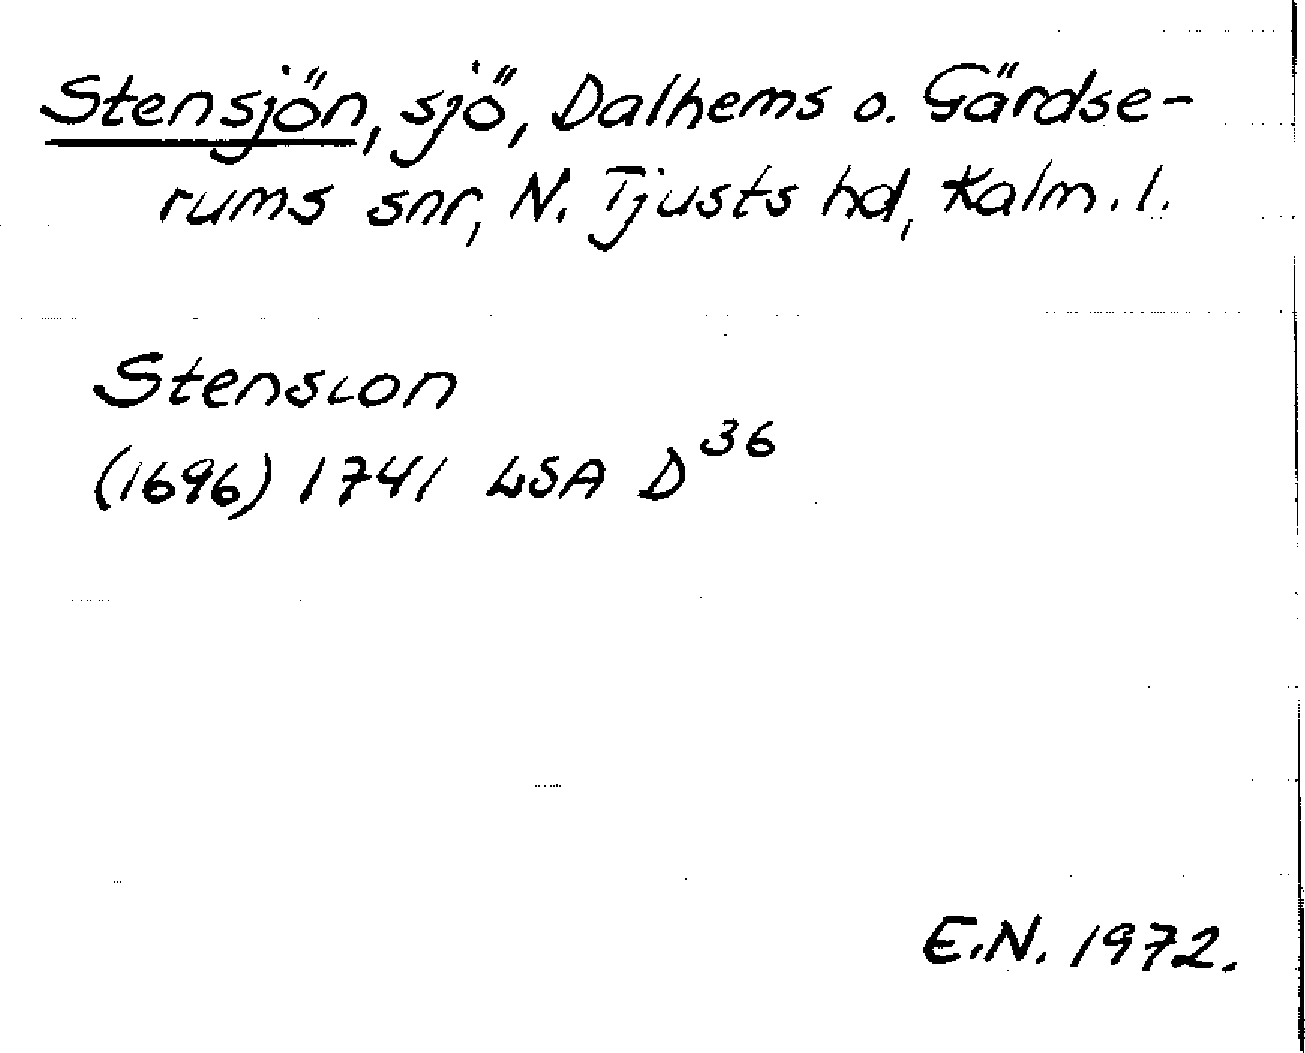 Stensjön, sjö, Dalhems o. Gärdse-
rums snr, N. Tjusts hd, Kalm. l.
Stension
(1696) 1741 LSA D³⁶
E.N. 1972.